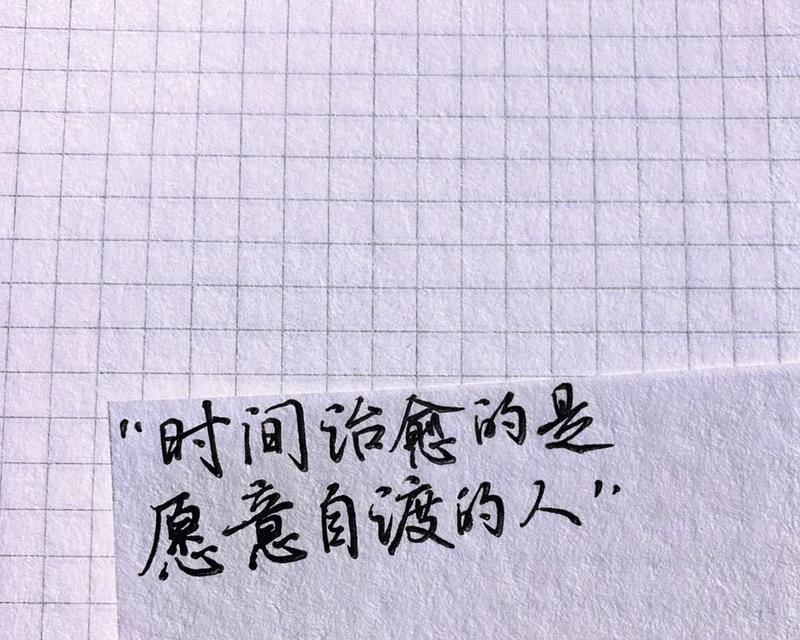 "时间治愈的是
愿意自渡的人"